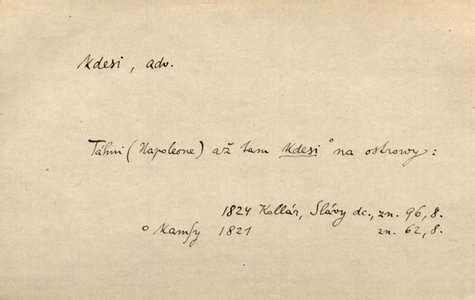 Kdesi, adv.
Táhni (Napoleone) až tam Kdesi ° na ostrowy:
1824 Kollár, Slávy dc., zn. 96, 8.
° Kamsy 1821 zn. 62, 8.